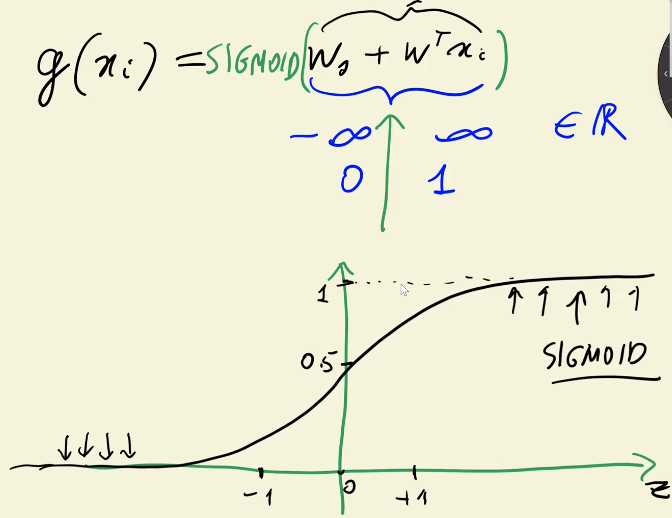 z
g(xᵢ) = SIGMOID(w₀ + wᵀxᵢ)
-∞ ∞ ∈ ℝ
0 1
1
0.5
SIGMOID
-1 0 +1 z